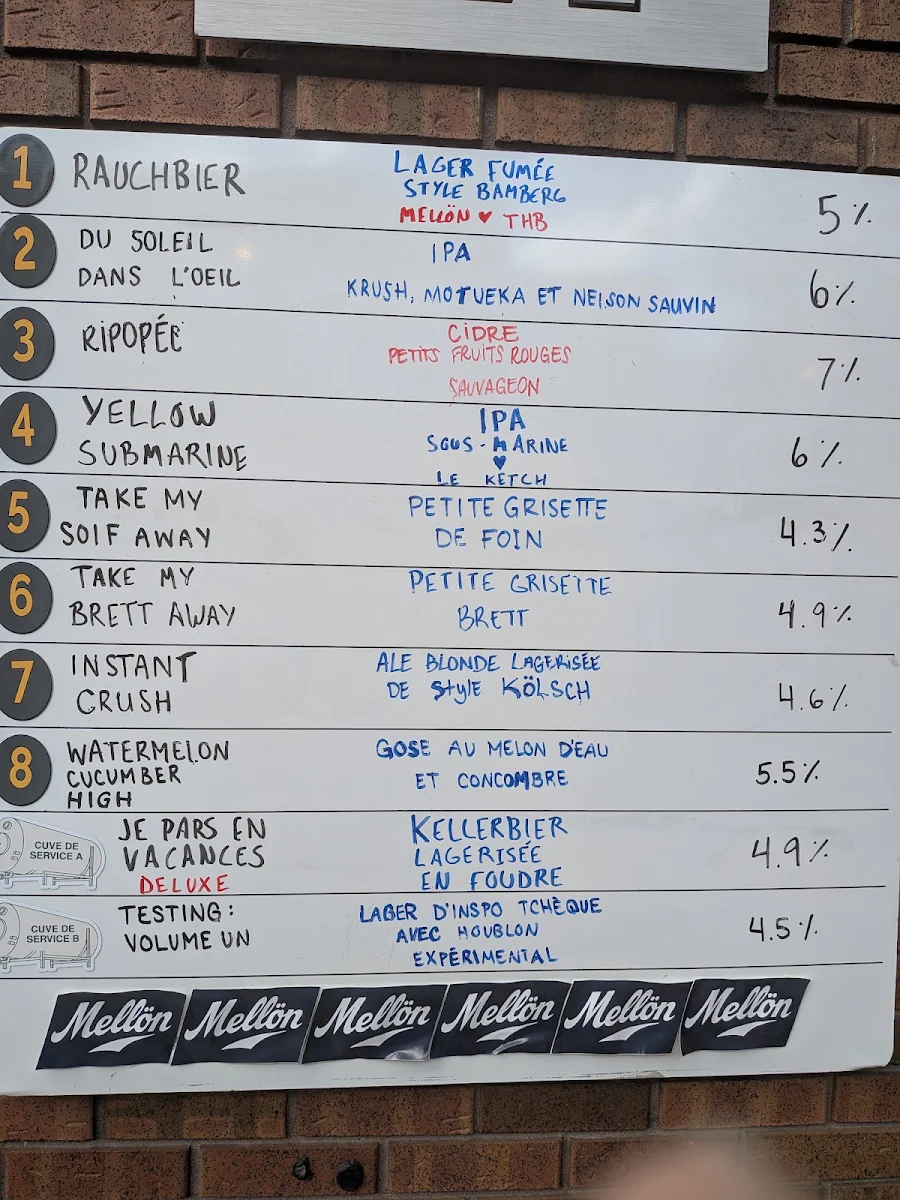 1 RAUCHBIER LAGER FUMÉE
STYLE BAMBERG
MELLÖN ♥ THB
5%
2 DU SOLEIL
DANS L'OEIL
IPA
KRUSH, MOTUEKA ET NELSON SAUVIN
6%
3 RIPOPÉE
CIDRE
PETITS FRUITS ROUGES
SAUVAGEON
7%
4 YELLOW
SUBMARINE
IPA
SOUS-MARINE
♥
LE KETCH
6%
5 TAKE MY
SOIF AWAY
PETITE GRISETTE
DE FOIN
4.3%
6 TAKE MY
BRETT AWAY
PETITE GRISETTE
BRETT
4.9%
7 INSTANT
CRUSH
ALE BLONDE LAGERISÉE
DE STYLE KÖLSCH
4.6%
8 WATERMELON
CUCUMBER
HIGH
GOSE AU MELON D'EAU
ET CONCOMBRE
5.5%
CUVE DE
SERVICE A
JE PARS EN
VACANCES
DELUXE
KELLERBIER
LAGERISÉE
EN FOUDRE
4.9%
CUVE DE
SERVICE B
TESTING:
VOLUME UN
LAGER D'INSPO TCHÈQUE
AVEC HOUBLON
EXPÉRIMENTAL
4.5%
Mellön Mellön Mellön Mellön Mellön Mellön